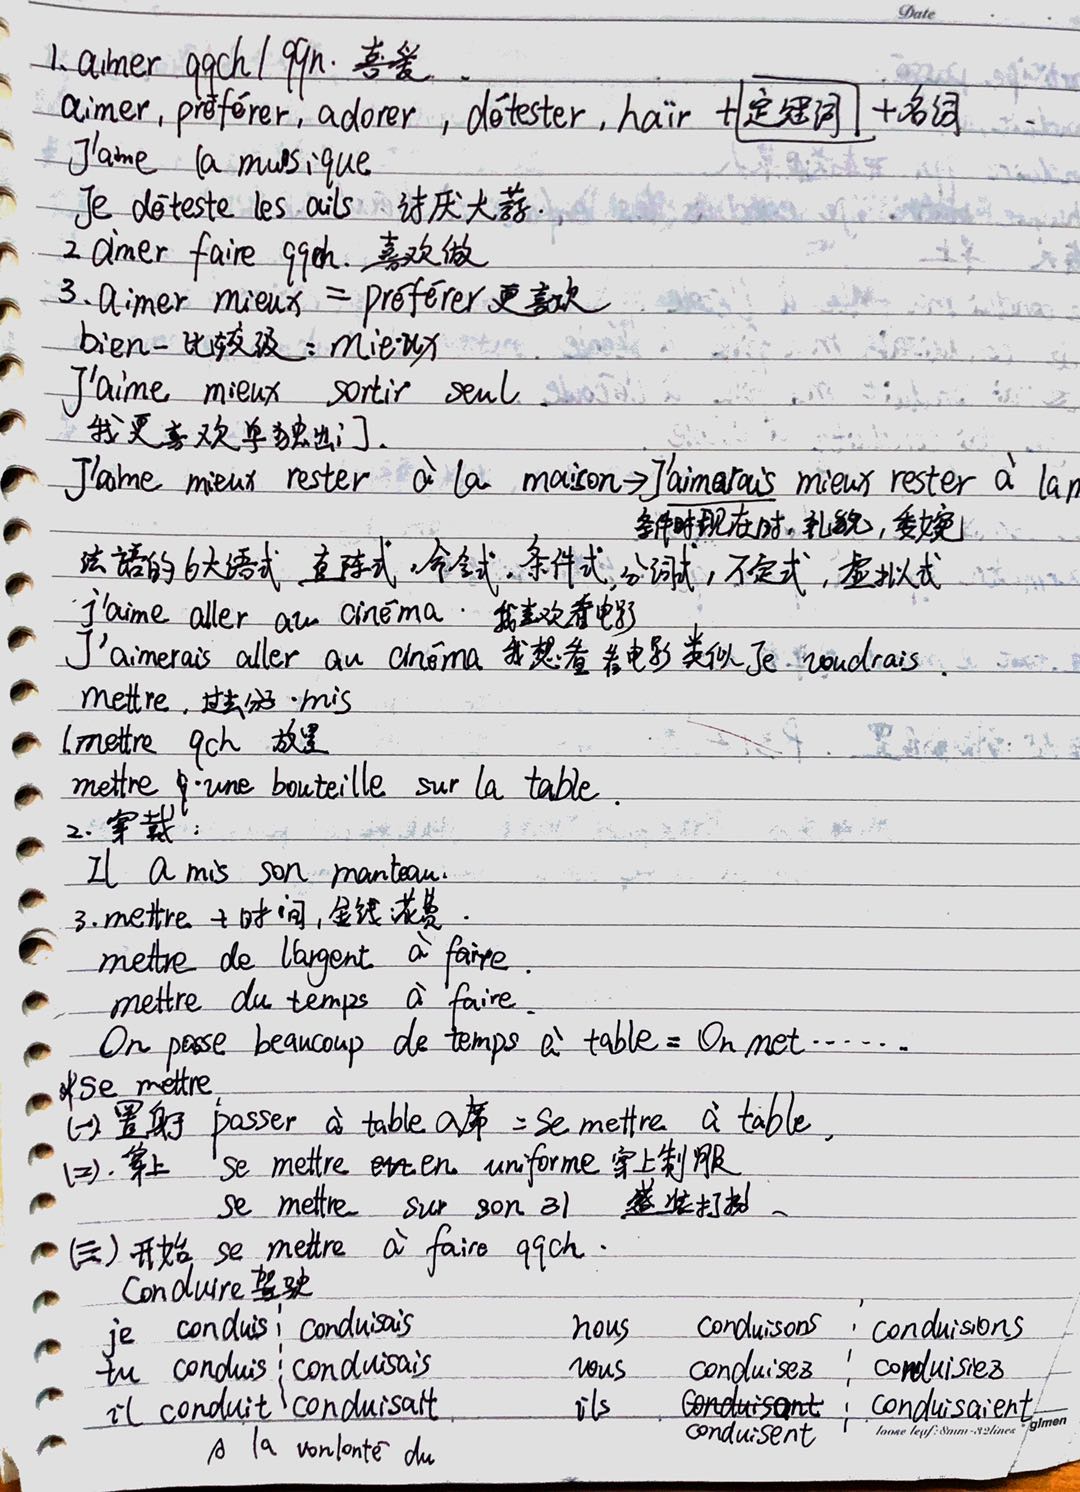 Date
1. aimer qqch / qqn. 喜爱.
aimer, préférer, adorer, détester, haïr + 定冠词 + 名词
J'aime la musique
Je déteste les ails 讨厌大蒜.
2 aimer faire qqch. 喜欢做
3. aimer mieux = préférer 更喜欢
bien - 比较级: mieux
J'aime mieux sortir seul.
我更喜欢单独出门.
J'aime mieux rester à la maison → J'aimerais mieux rester à la
条件时现在时, 礼貌, 委婉
法語的6大语式 直陈式, 命令式, 条件式, 分词式, 不定式, 虚拟式
j'aime aller au cinéma. 我喜欢看电影
J'aimerais aller au cinéma 我想看看电影 类似 Je voudrais.
mettre, 过去分 . mis
1. mettre qch 放置
mettre une bouteille sur la table.
2. 穿戴:
Il a mis son manteau.
3. mettre + 时间, 金钱 花费.
mettre de l'argent à faire.
mettre du temps à faire.
On passe beaucoup de temps à table = On met ......
*se mettre
(一) 置身于 passer à table 入席 = se mettre à table,
(二). 穿上 se mettre en uniforme 穿上制服
se mettre sur son 31 盛装打扮、
(三) 开始 se mettre à faire qqch.
Conduire 驾驶
je conduis conduisais nous conduisons conduisions
tu conduis conduisais vous conduisez conduisiez
il conduit conduisait ils conduisant conduisaient
conduisent
loose leaf: 8mm-32lines glmen
à la vonlonté du